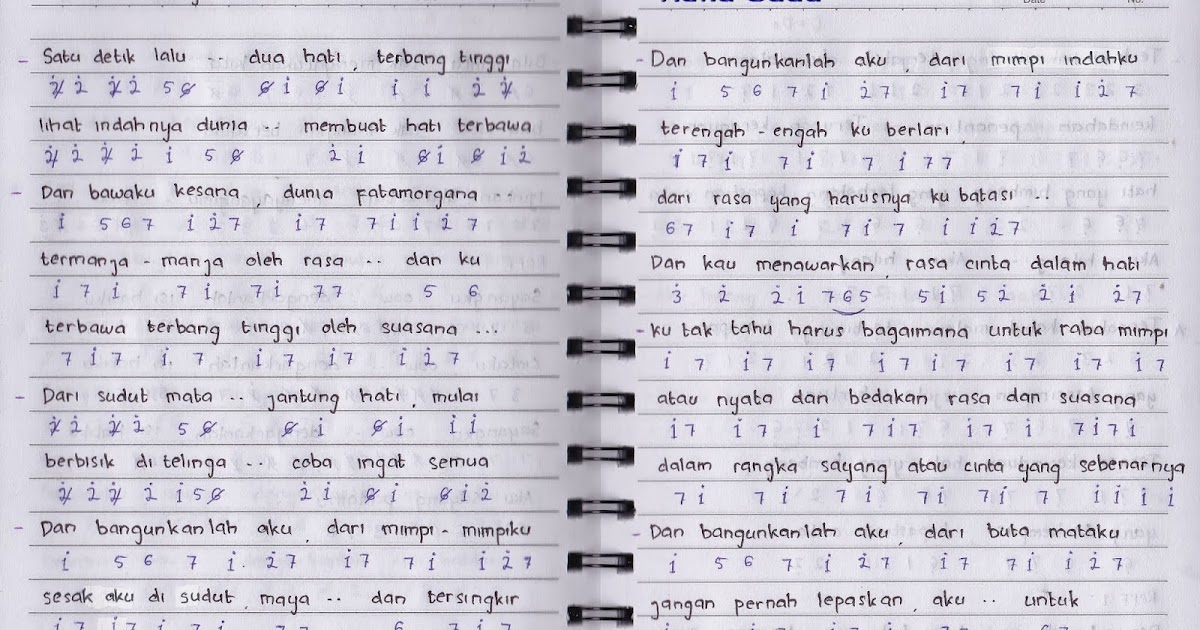 - Satu detik lalu .. dua hati, terbang tinggi
2̸̇ 2̇ 2̸̇ 2̇ 5 6̸ 6̸ 1̇ 6̸ 1̇ 1̇ 1̇ 2̇ 2̸̇
lihat indahnya dunia .. membuat hati terbawa
2̸̇ 2̇ 2̸̇ 2̇ 1̇ 5 6̸ 2̇ 1̇ 6̸ 1̇ 6̸ 1̇ 2̇
- Dan bawaku kesana, dunia fatamorgana ...
1̇ 5 6 7 1̇ 2̇ 7 1̇ 7 7 1̇ 1̇ 2̇ 7
termanja - manja oleh rasa .. dan ku
1̇ 7 1̇ 7 1̇ 7 1̇ 7 7 5 6
terbawa terbang tinggi oleh suasana ...
7 1̇ 7 1̇ 7 1̇ 7 1̇ 7 1̇ 2̇ 7
- Dari sudut mata .. jantung hati, mulai
2̸̇ 2̇ 2̸̇ 2̇ 5 6̸ 6̸ 1̇ 6̸ 1̇ 1̇ 1̇
berbisik di telinga .. coba ingat semua
2̸̇ 2̇ 2̸̇ 2̇ 1̇ 5 6̸ 2̇ 1̇ 6̸ 1̇ 6̸ 1̇ 2̇
- Dan bangunkanlah aku, dari mimpi - mimpiku
1̇ 5 6 7 1̇. 2̇ 7 1̇ 7 7 1̇ 1̇ 2̇ 7
sesak aku di sudut, maya .. dan tersingkir
- Dan bangunkanlah aku, dari mimpi indahku
1̇ 5 6 7 1̇ 2̇ 7 1̇ 7 7 1̇ 1̇ 2̇ 7
terengah - engah ku berlari,
1̇ 7 1̇ 7 1̇ 7 1̇ 7 7
dari rasa yang harusnya ku batasi ..
6 7 1̇ 7 1̇ 7 1̇ 7 1̇ 1̇ 2̇ 7
Dan kau menawarkan, rasa cinta dalam hati
3̇ 2̇ 2̇ 1̇ 7 6 5 5 1̇ 5 2̇ 2̇ 1̇ 2̇ 7
- ku tak tahu harus bagaimana untuk raba mimpi
1̇ 7 1̇ 7 1̇ 7 1̇ 7 1̇ 7 1̇ 7 1̇ 7 1̇ 7
atau nyata dan bedakan rasa dan suasana
1̇ 7 1̇ 7 1̇ 7 1̇ 7 1̇ 7 1̇ 7 1̇ 7 1̇
dalam rangka sayang atau cinta yang sebenarnya
7 1̇ 7 1̇ 7 1̇ 7 1̇ 7 1̇ 7 1̇ 1̇ 1̇ 1̇
- Dan bangunkanlah aku, dari buta mataku
1̇ 5 6 7 1̇ 2̇ 7 1̇ 7 7 1̇ 1̇ 2̇ 7
jangan pernah lepaskan, aku .. untuk